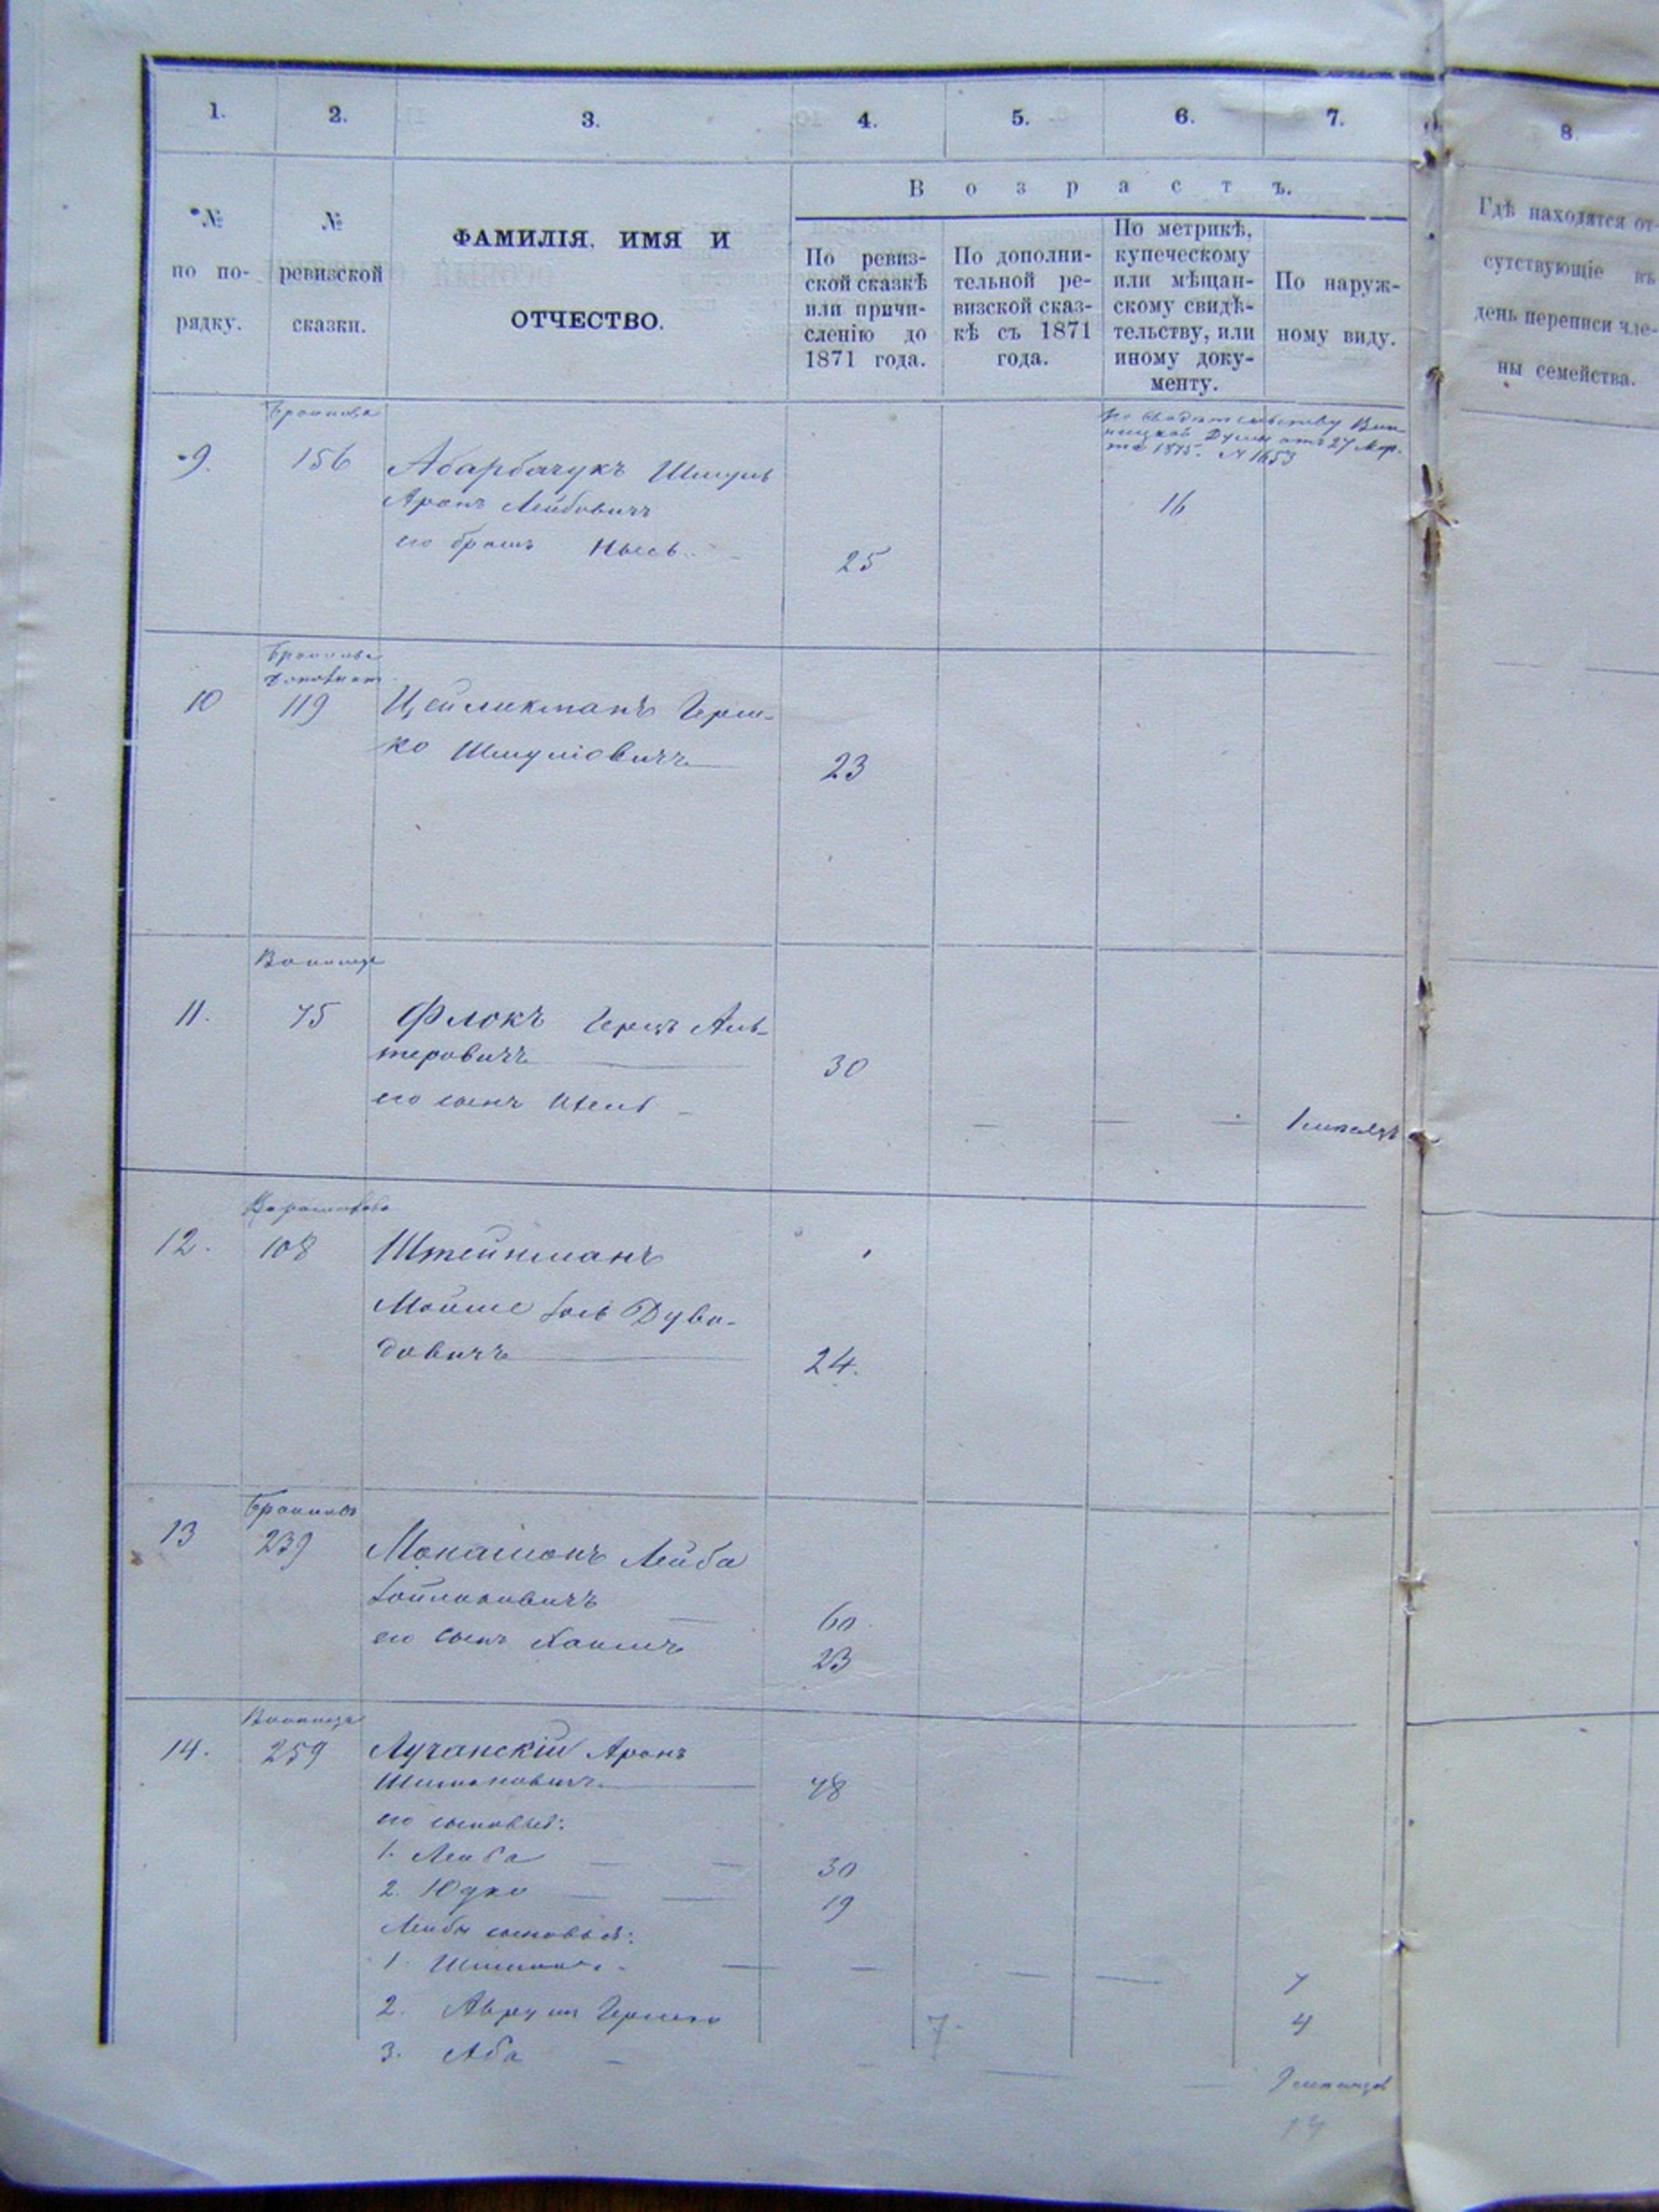 1.
2.
3.
4.
5.
6.
7.
8.
№
по по-
рядку.
№
ревизской
сказки.
ФАМИЛІЯ, ИМЯ И
ОТЧЕСТВО.
Возрастъ.
По ревиз-
ской сказкѣ
или причи-
сленію до
1871 года.
По дополни-
тельной ре-
визской сказ-
кѣ съ 1871
года.
По метрикѣ,
купеческому
или мѣщан-
скому свидѣ-
тельству, или
иному доку-
менту.
По наруж-
ному виду.
Гдѣ находятся от-
сутствующіе въ
день переписи чле-
ны семейства.
9.
156
Абарбачукъ Шмуль
Аронъ Лейбовичъ
его братъ
25
По свидѣтельству Вин-
ницкой Думы отъ 27 Мар-
та 1875. № 1653
16
10
119
Цейликманъ Герш-
ко Шмуліовичъ
23
Винница
11.
75
Флокъ Герцъ Аль-
теровичъ
30
его сынъ
1 мѣсяцъ
12.
108
Штейнманъ
Мойше Іось Дуви-
довичъ
24.
13
239
Монашонъ Лейба
60
его сынъ Хаимъ
23
Винница
14.
259
Лучанскій Аронъ
Шимоновичъ
48
его сыновья:
1. Лейба
30
2. Юдко
19
Лейбы сыновья:
1. Шимонъ
7
2. Аврумъ Гершко
4
3. Аба
9 мѣсяцов
7.